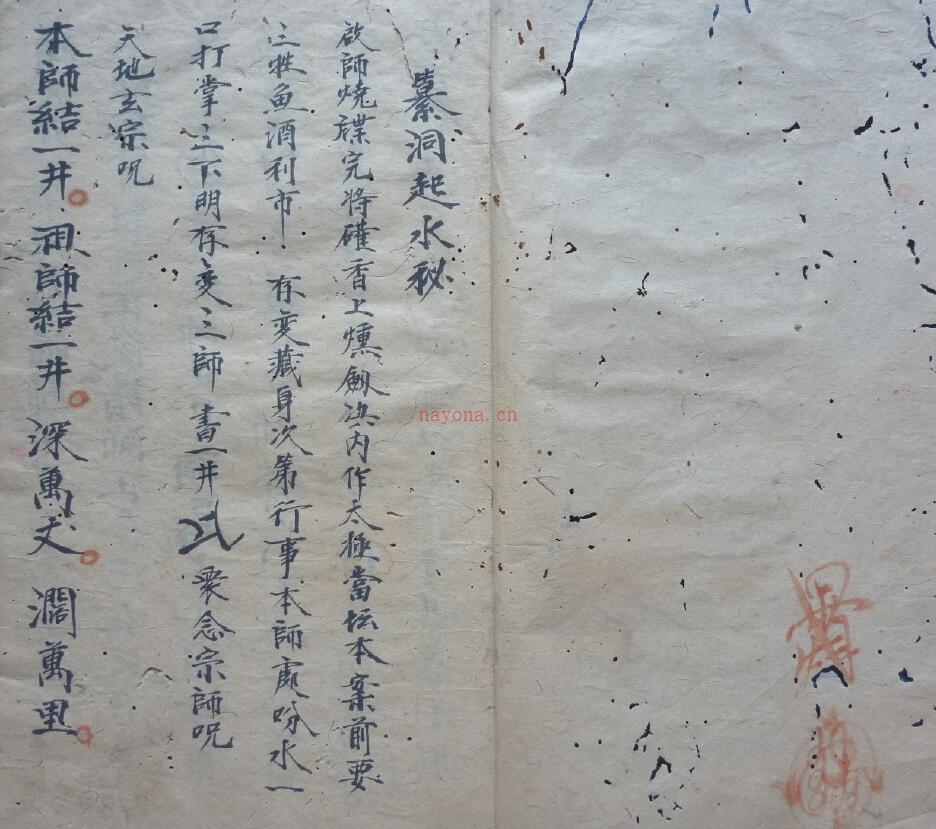 纂洞起水秘
啟師燒牒完將碓香上燻劍决内作太極當坛本案前要
三牲魚酒利市 存変藏身次第行事本師處吩水一
口打掌三下明存变三師 書一井 衆念宗師咒
天地玄宗咒
本師結一井。祖師結一井。深萬丈。濶萬里。
nayona.cn